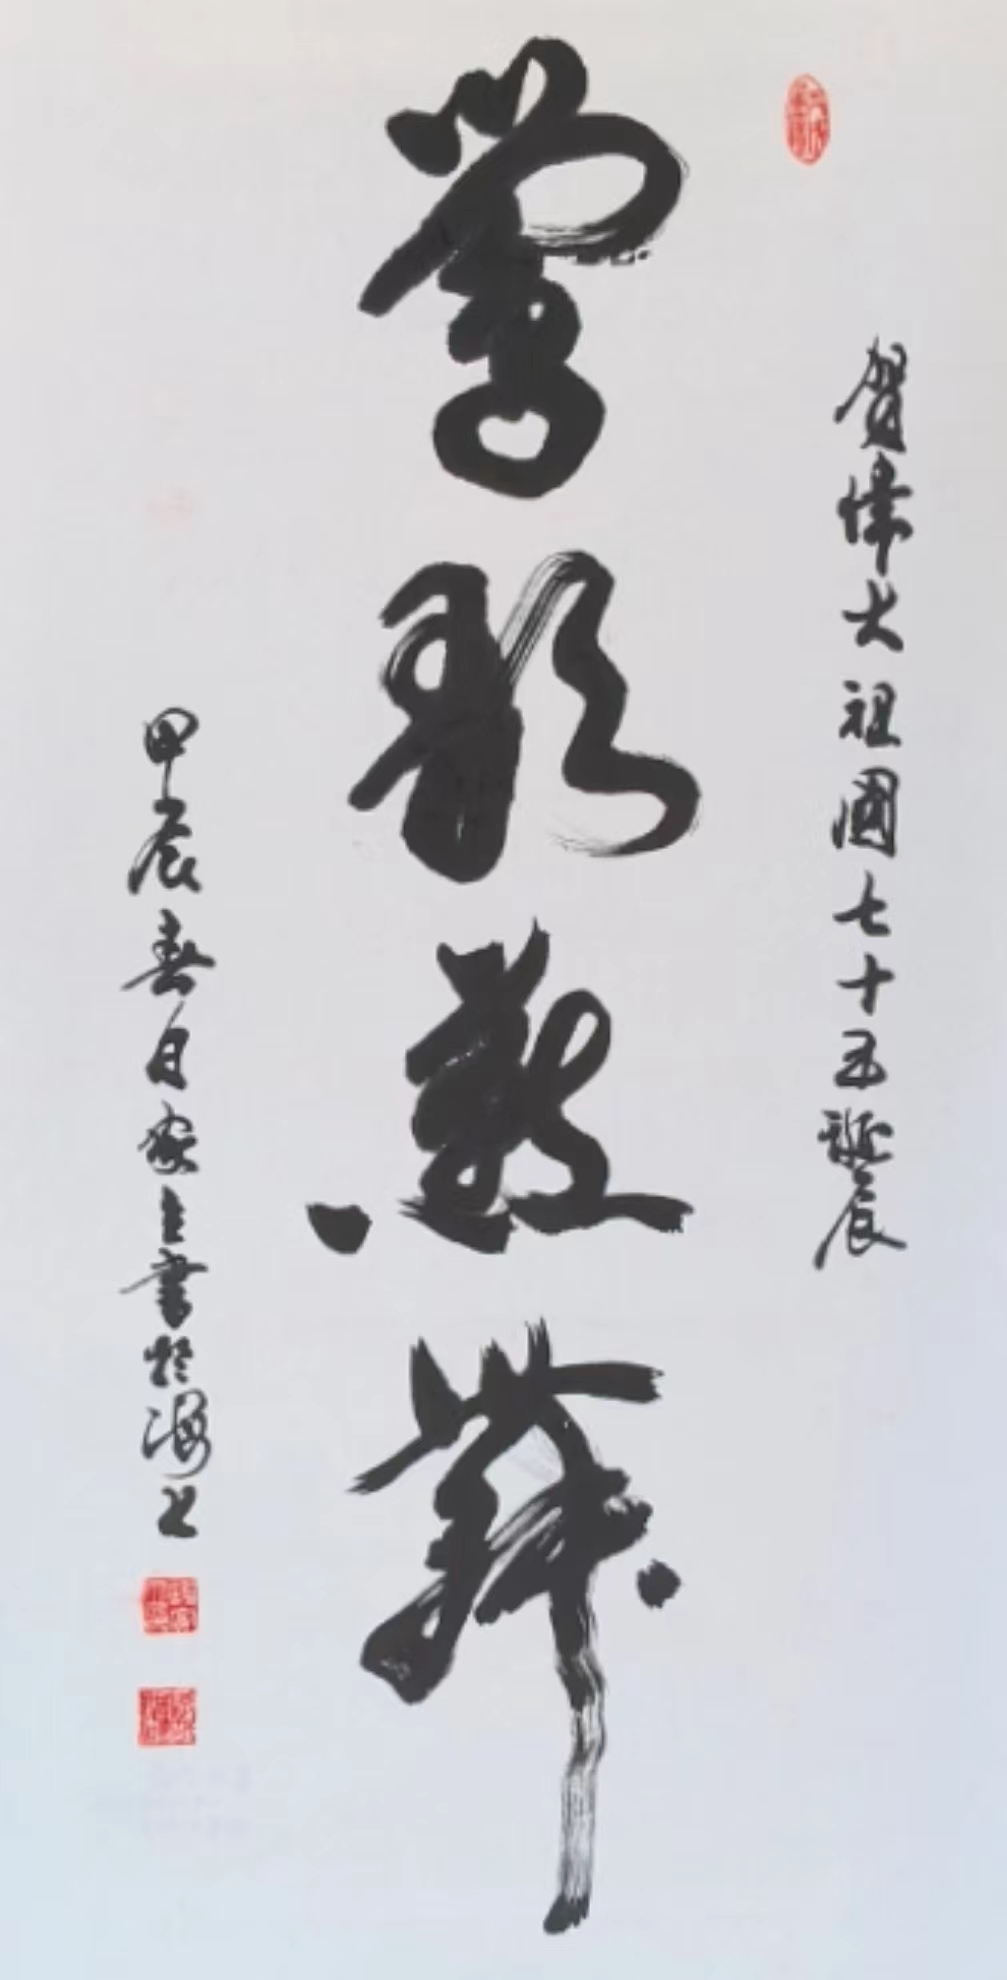 賀偉大祖國七十五誕辰
鶯歌燕舞
甲辰春月家立書於海上